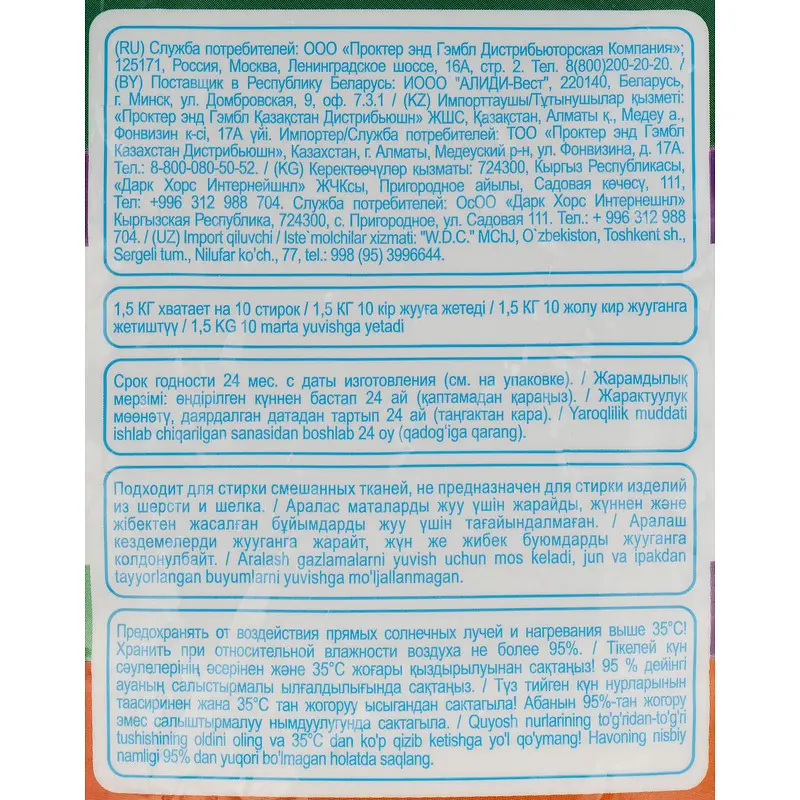 (RU) Служба потребителей: ООО «Проктер энд Гэмбл Дистрибьюторская Компания»;
125171, Россия, Москва, Ленинградское шоссе, 16А, стр. 2. Тел. 8(800)200-20-20. /
(BY) Поставщик в Республику Беларусь: ИООО "АЛИДИ-Вест", 220140, Беларусь,
г. Минск, ул. Домбровская, 9, оф. 7.3.1 / (KZ) Импорттаушы/Тұтынушылар қызметі:
«Проктер энд Гэмбл Қазақстан Дистрибьюшн» ЖШС, Қазақстан, Алматы қ., Медеу а.,
Фонвизин к-сі, 17А үйі. Импортер/Служба потребителей: ТОО «Проктер энд Гэмбл
Казахстан Дистрибьюшн», Казахстан, г. Алматы, Медеуский р-н, ул. Фонвизина, д. 17А.
Тел.: 8-800-080-50-52. / (KG) Керектөөчүлөр кызматы: 724300, Кыргыз Республикасы,
«Дарк Хорс Интернейшнл» ЖЧКсы, Пригородное айылы, Садовая көчөсү, 111,
Тел: +996 312 988 704. Служба потребителей: ОсОО «Дарк Хорс Интернешнл»
Кыргызская Республика, 724300, с. Пригородное, ул. Садовая 111. Тел.: + 996 312 988
704. / (UZ) Import qiluvchi / Iste`molchilar xizmati: "W.D.C." MChJ, O`zbekiston, Toshkent sh.,
Sergeli tum., Nilufar ko'ch., 77, tel.: 998 (95) 3996644.
1,5 КГ хватает на 10 стирок / 1,5 КГ 10 кір жууға жетеді / 1,5 КГ 10 жолу кир жууганга
жетиштүү / 1,5 KG 10 marta yuvishga yetadi
Срок годности 24 мес. с даты изготовления (см. на упаковке). / Жарамдылық
мерзімі: өндірілген күннен бастап 24 ай (қаптамадан қараңыз). / Жарактуулук
мөөнөтү, даярдалган датадан тартып 24 ай (таңгактан кара). / Yaroqlilik muddati
ishlab chiqarilgan sanasidan boshlab 24 oy (qadog'iga qarang).
Подходит для стирки смешанных тканей, не предназначен для стирки изделий
из шерсти и шелка. / Аралас маталарды жуу үшін жарайды, жүннен және
жібектен жасалған бұйымдарды жуу үшін тағайындалмаған. / Аралаш
кездемелерди жууганга жарайт, жүн же жибек буюмдарды жууганга
колдонулбайт. / Aralash gazlamalarni yuvish uchun mos keladi, jun va ipakdan
tayyorlangan buyumlarni yuvishga mo'ljallanmagan.
Предохранять от воздействия прямых солнечных лучей и нагревания выше 35°С!
Хранить при относительной влажности воздуха не более 95%. / Тікелей күн
сәулелерінің әсерінен және 35°С жоғары қыздырылуынан сақтаңыз! 95 % дейінгі
ауаның салыстырмалы ылғалдылығында сақтаңыз. / Түз тийген күн нурларынын
таасиринен жана 35°С тан жогоруу ысыгандан сактагыла! Абанын 95%-тан жогору
эмес салыштырмалуу нымдуулугунда сактагыла. / Quyosh nurlarining to'g'ridan-to'g'ri
tushishining oldini oling va 35°C dan ko'p qizib ketishga yo'l qo'ymang! Havoning nisbiy
namligi 95% dan yuqori bo'lmagan holatda saqlang.